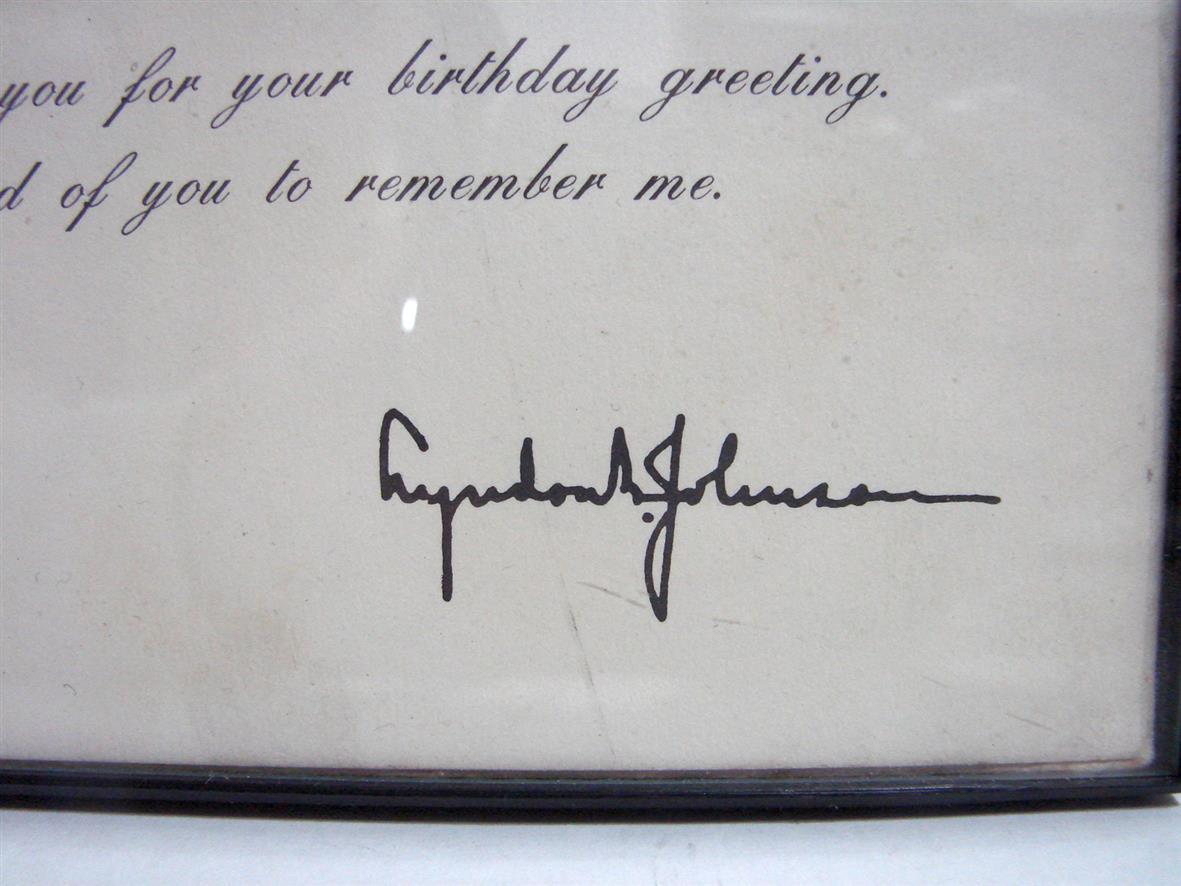 you for your birthday greeting.
d of you to remember me.
Lyndon B. Johnson